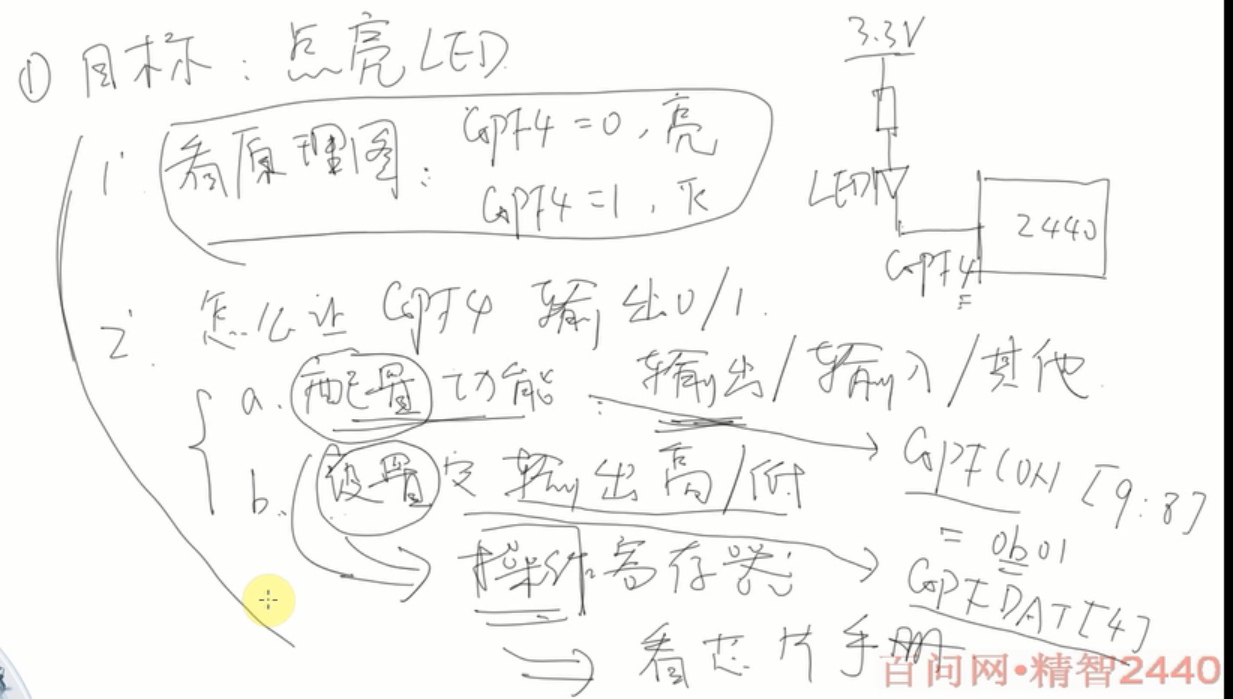 ① 目标：点亮LED
3.3V
1. 看原理图：GPF4=0，亮
GPF4=1，灭
LED
2440
GPF4
2. 怎么让 GPF4 输出0/1.
a. 配置 功能：输出/输入/其他.
GPFCON [9:8]
= 0b01
b. 设置它输出高/低
GPFDAT[4]
操作寄存器
看芯片手册
百问网•精智2440